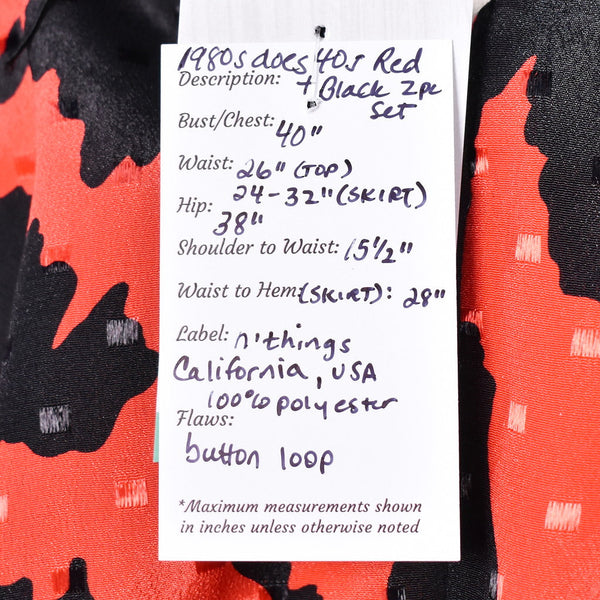 1980s does 40s Red
Description: + Black 2pc
Set
Bust/Chest: 40"
Waist: 26" (TOP)
24-32" (SKIRT)
Hip: 38"
Shoulder to Waist: 15 1/2"
Waist to Hem: (SKIRT): 28"
Label: n'things
California, USA
100% polyester
Flaws:
button loop
*Maximum measurements shown
in inches unless otherwise noted